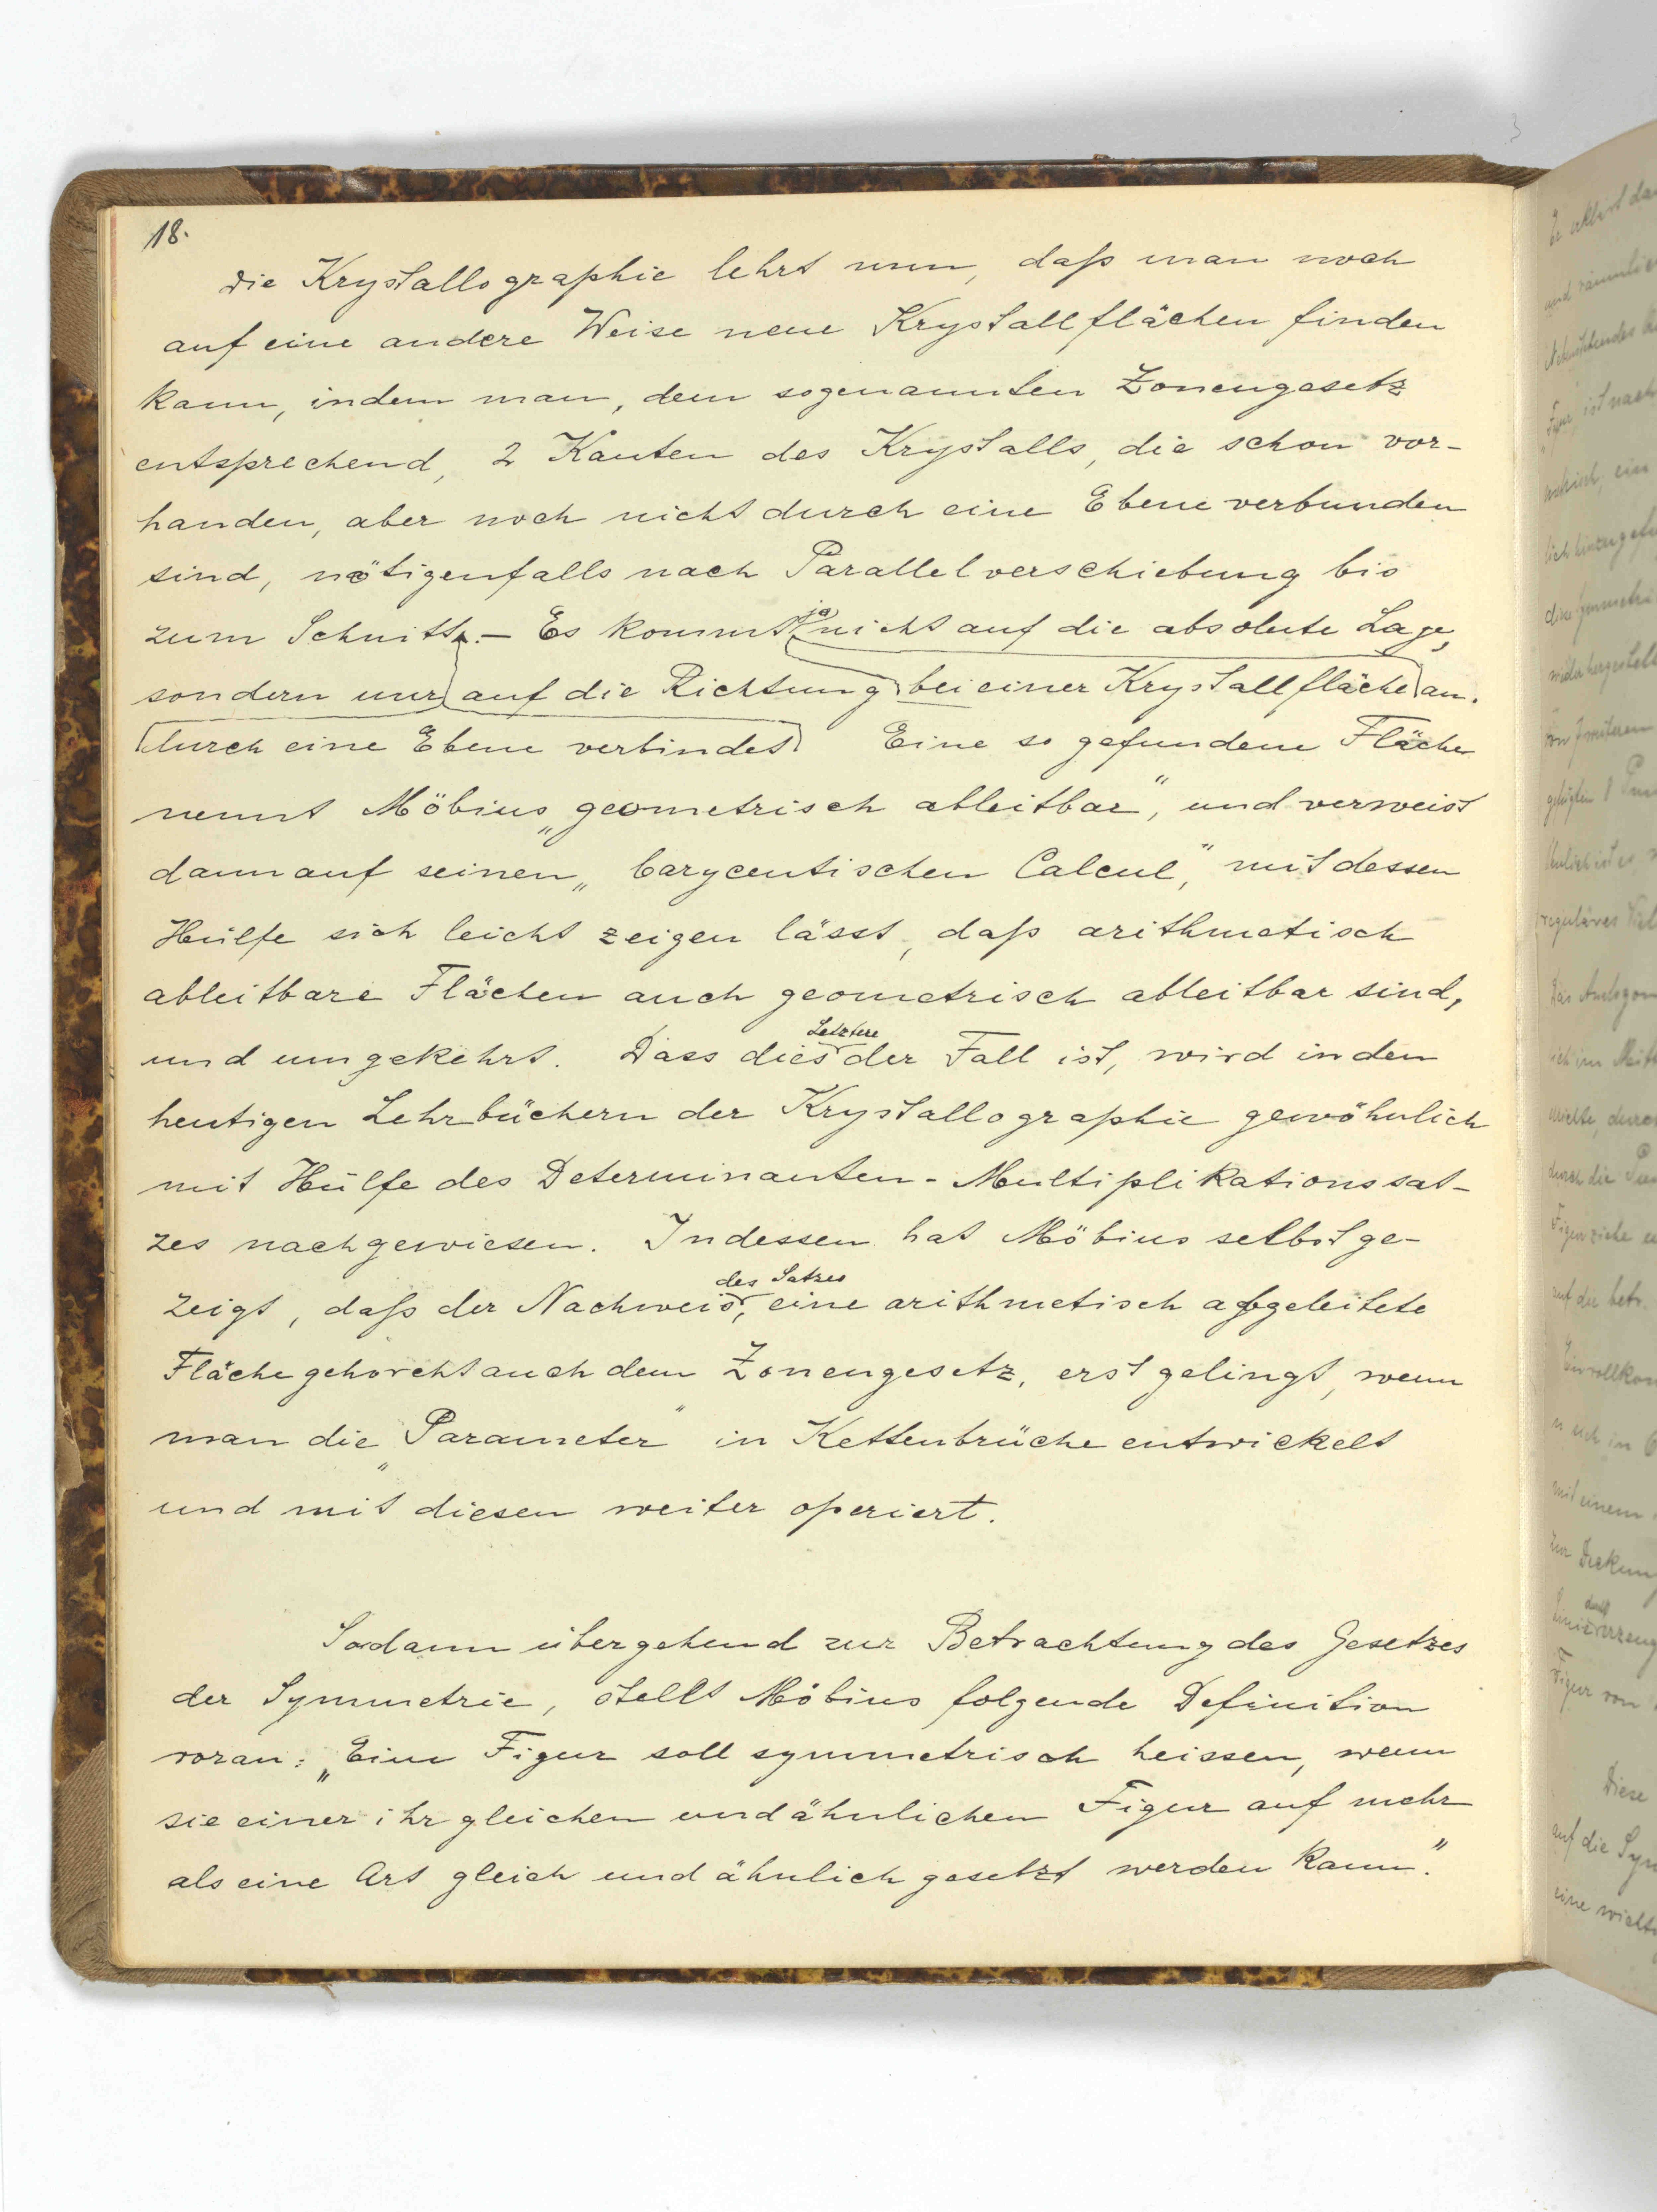 18.
Die Krystallographie lehrt nun, daß man noch
auf eine andere Weise neue Krystallflächen finden
kann, indem man, dem sogenannten Zonengesetz
entsprechend, 2 Kanten des Krystalls, die schon vor-
handen, aber noch nicht durch eine Ebene verbunden
sind, nötigenfalls nach Parallelverschiebung bis
zum Schnitt. – Es kommt ja nicht auf die absolute Lage,
sondern nur auf die Richtung bei einer Krystallfläche an.
durch eine Ebene verbindet. Eine so gefundene Fläche
nennt Möbius „geometrisch ableitbar", und verweist
dann auf seinen „barycentischen Calcul", mit dessen
Hülfe sich leicht zeigen lässt, daß arithmetisch
ableitbare Flächen auch geometrisch ableitbar sind,
und umgekehrt. Dass dies Letztere der Fall ist, wird in den
heutigen Lehrbüchern der Krystallographie gewöhnlich
mit Hülfe des Determinanten-Multiplikationssat-
zes nachgewiesen. Indessen hat Möbius selbst ge-
zeigt, daß der Nachweis des Satzes, eine arithmetisch abgeleitete
Fläche gehorcht auch dem Zonengesetz, erst gelingt, wenn
man die „Parameter" in Kettenbrüche entwickelt
und mit diesen weiter operiert.
Sodann übergehend zur Betrachtung des Gesetzes
der Symmetrie, stellt Möbius folgende Definition
voran: „Eine Figur soll symmetrisch heissen, wenn
sie einer ihr gleichen und ähnlichen Figur auf mehr
als eine Art gleich und ähnlich gesetzt werden kann."